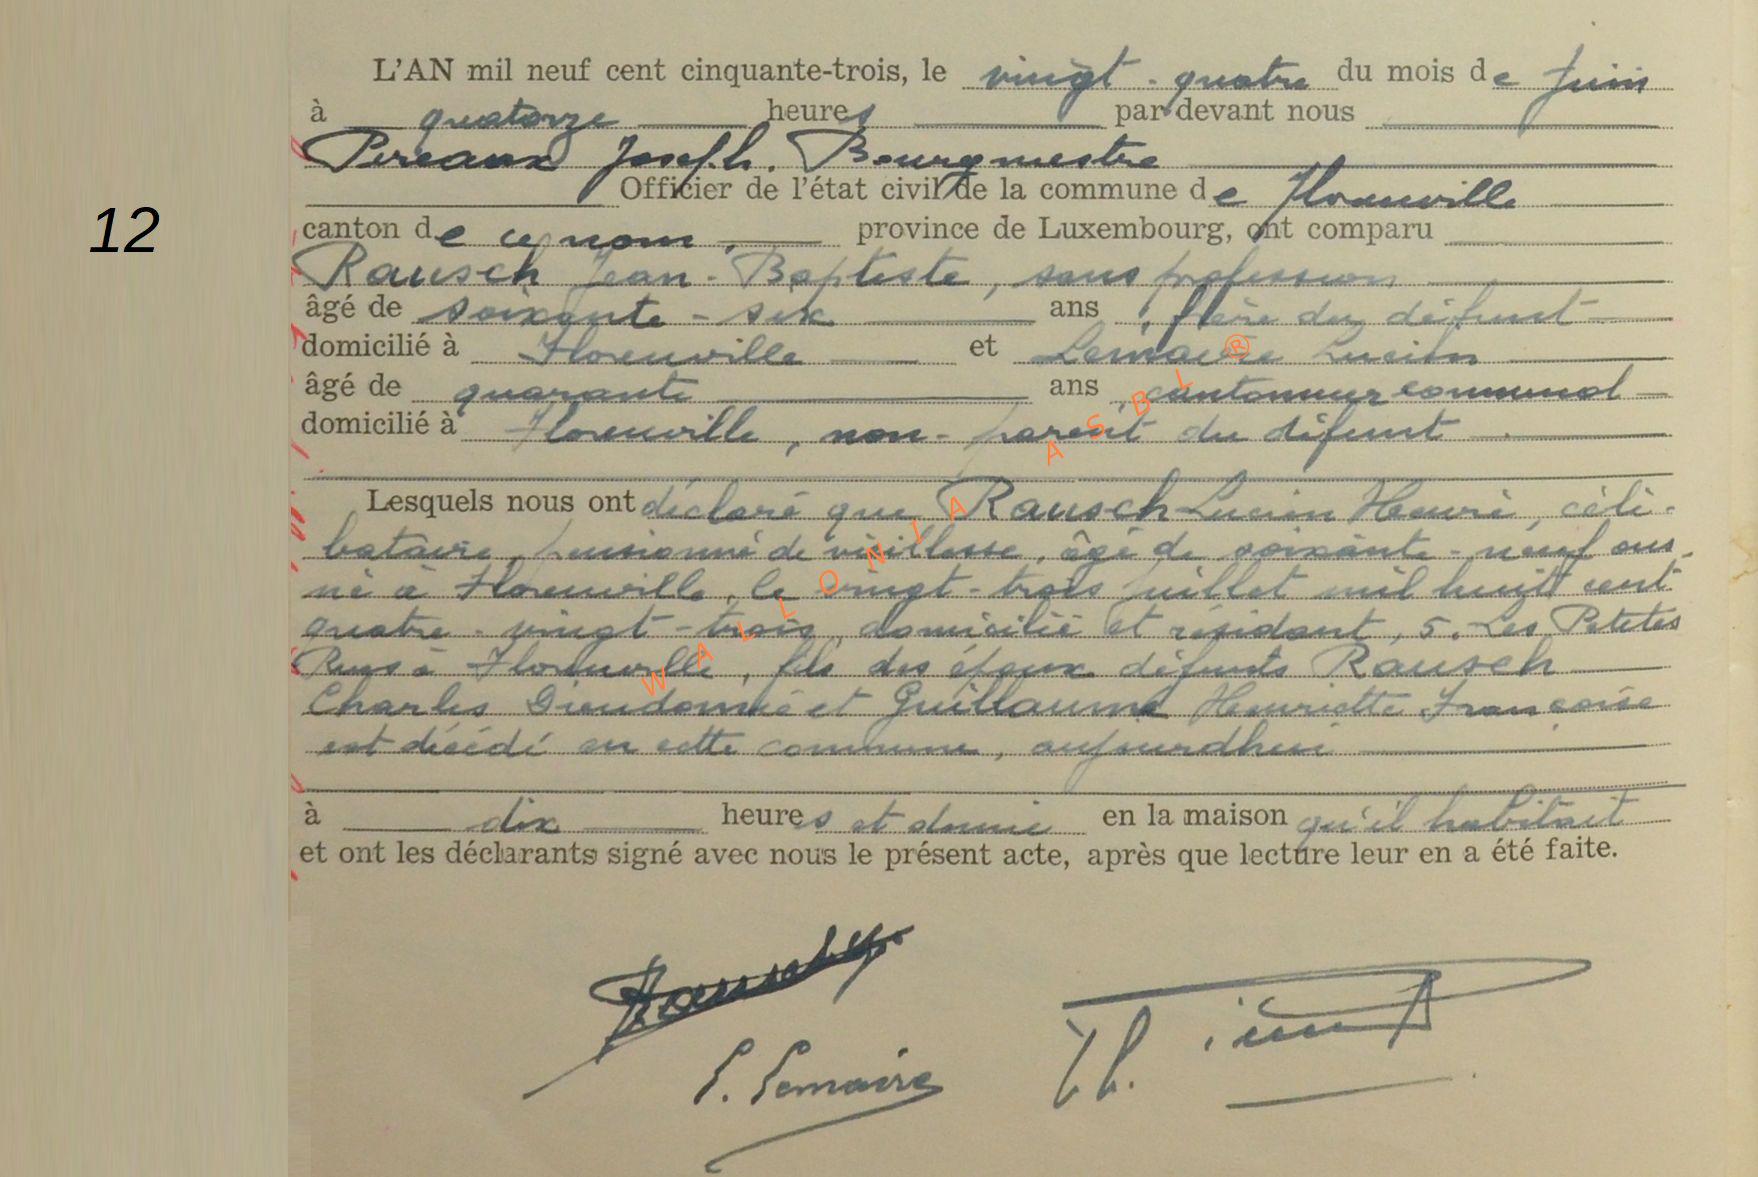 L'AN mil neuf cent cinquante-trois, le vingt-quatre du mois de Juin
à quatorze heures par devant nous
Pireaux Joseph. Bourgmestre
Officier de l'état civil de la commune de Florenville
12
canton de ce nom, province de Luxembourg, ont comparu
Rausch Jean-Baptiste, sans profession
âgé de soixante-six ans, frère du défunt
domicilié à Florenville et Lemaire Lucien
âgé de quarante ans, cantonnier communal
domicilié à Florenville, non-parent du défunt
Lesquels nous ont déclaré que Rausch Lucien Henri, céli-
bataire, pensionné de vieillesse, âgé de soixante-neuf ans,
né à Florenville, le vingt-trois juillet mil huit cent
quatre-vingt-trois, domicilié et résidant, 5. Les Petites
Rues à Florenville, fils des époux défunts Rausch
Charles Dieudonné et Guillaume Henriette Françoise
est décédé en cette commune, aujourdhui
à dix heures et demie en la maison qu'il habitait
et ont les déclarants signé avec nous le présent acte, après que lecture leur en a été faite.
L. Lemaire
WALLONIA ASBL ®